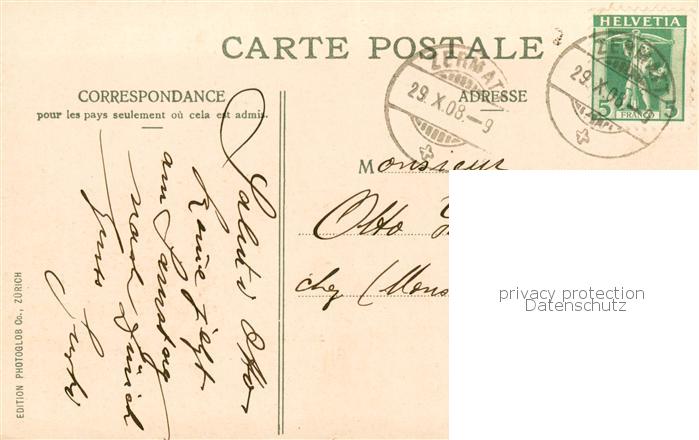 CARTE POSTALE
HELVETIA
5 FRANCO 5
ZERMATT
29.X.08.-9
ZERMATT
29.X.08.-9
CORRESPONDANCE
pour les pays seulement où cela est admis.
ADRESSE
Monsieur
Otto
chez (Mons
Saluti Otto
am Samstag
nach Zürich
EDITION PHOTOGLOB Co., ZÜRICH
privacy protection
Datenschutz